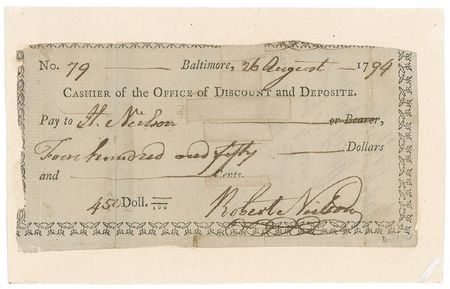 No. 79 Baltimore, 26 August 1794
CASHIER OF THE OFFICE OF DISCOUNT AND DEPOSITE.
Pay to H. Neilson or Bearer,
Four hundred and fifty Dollars
and Cents.
450 Doll. 100
Robert Neilson